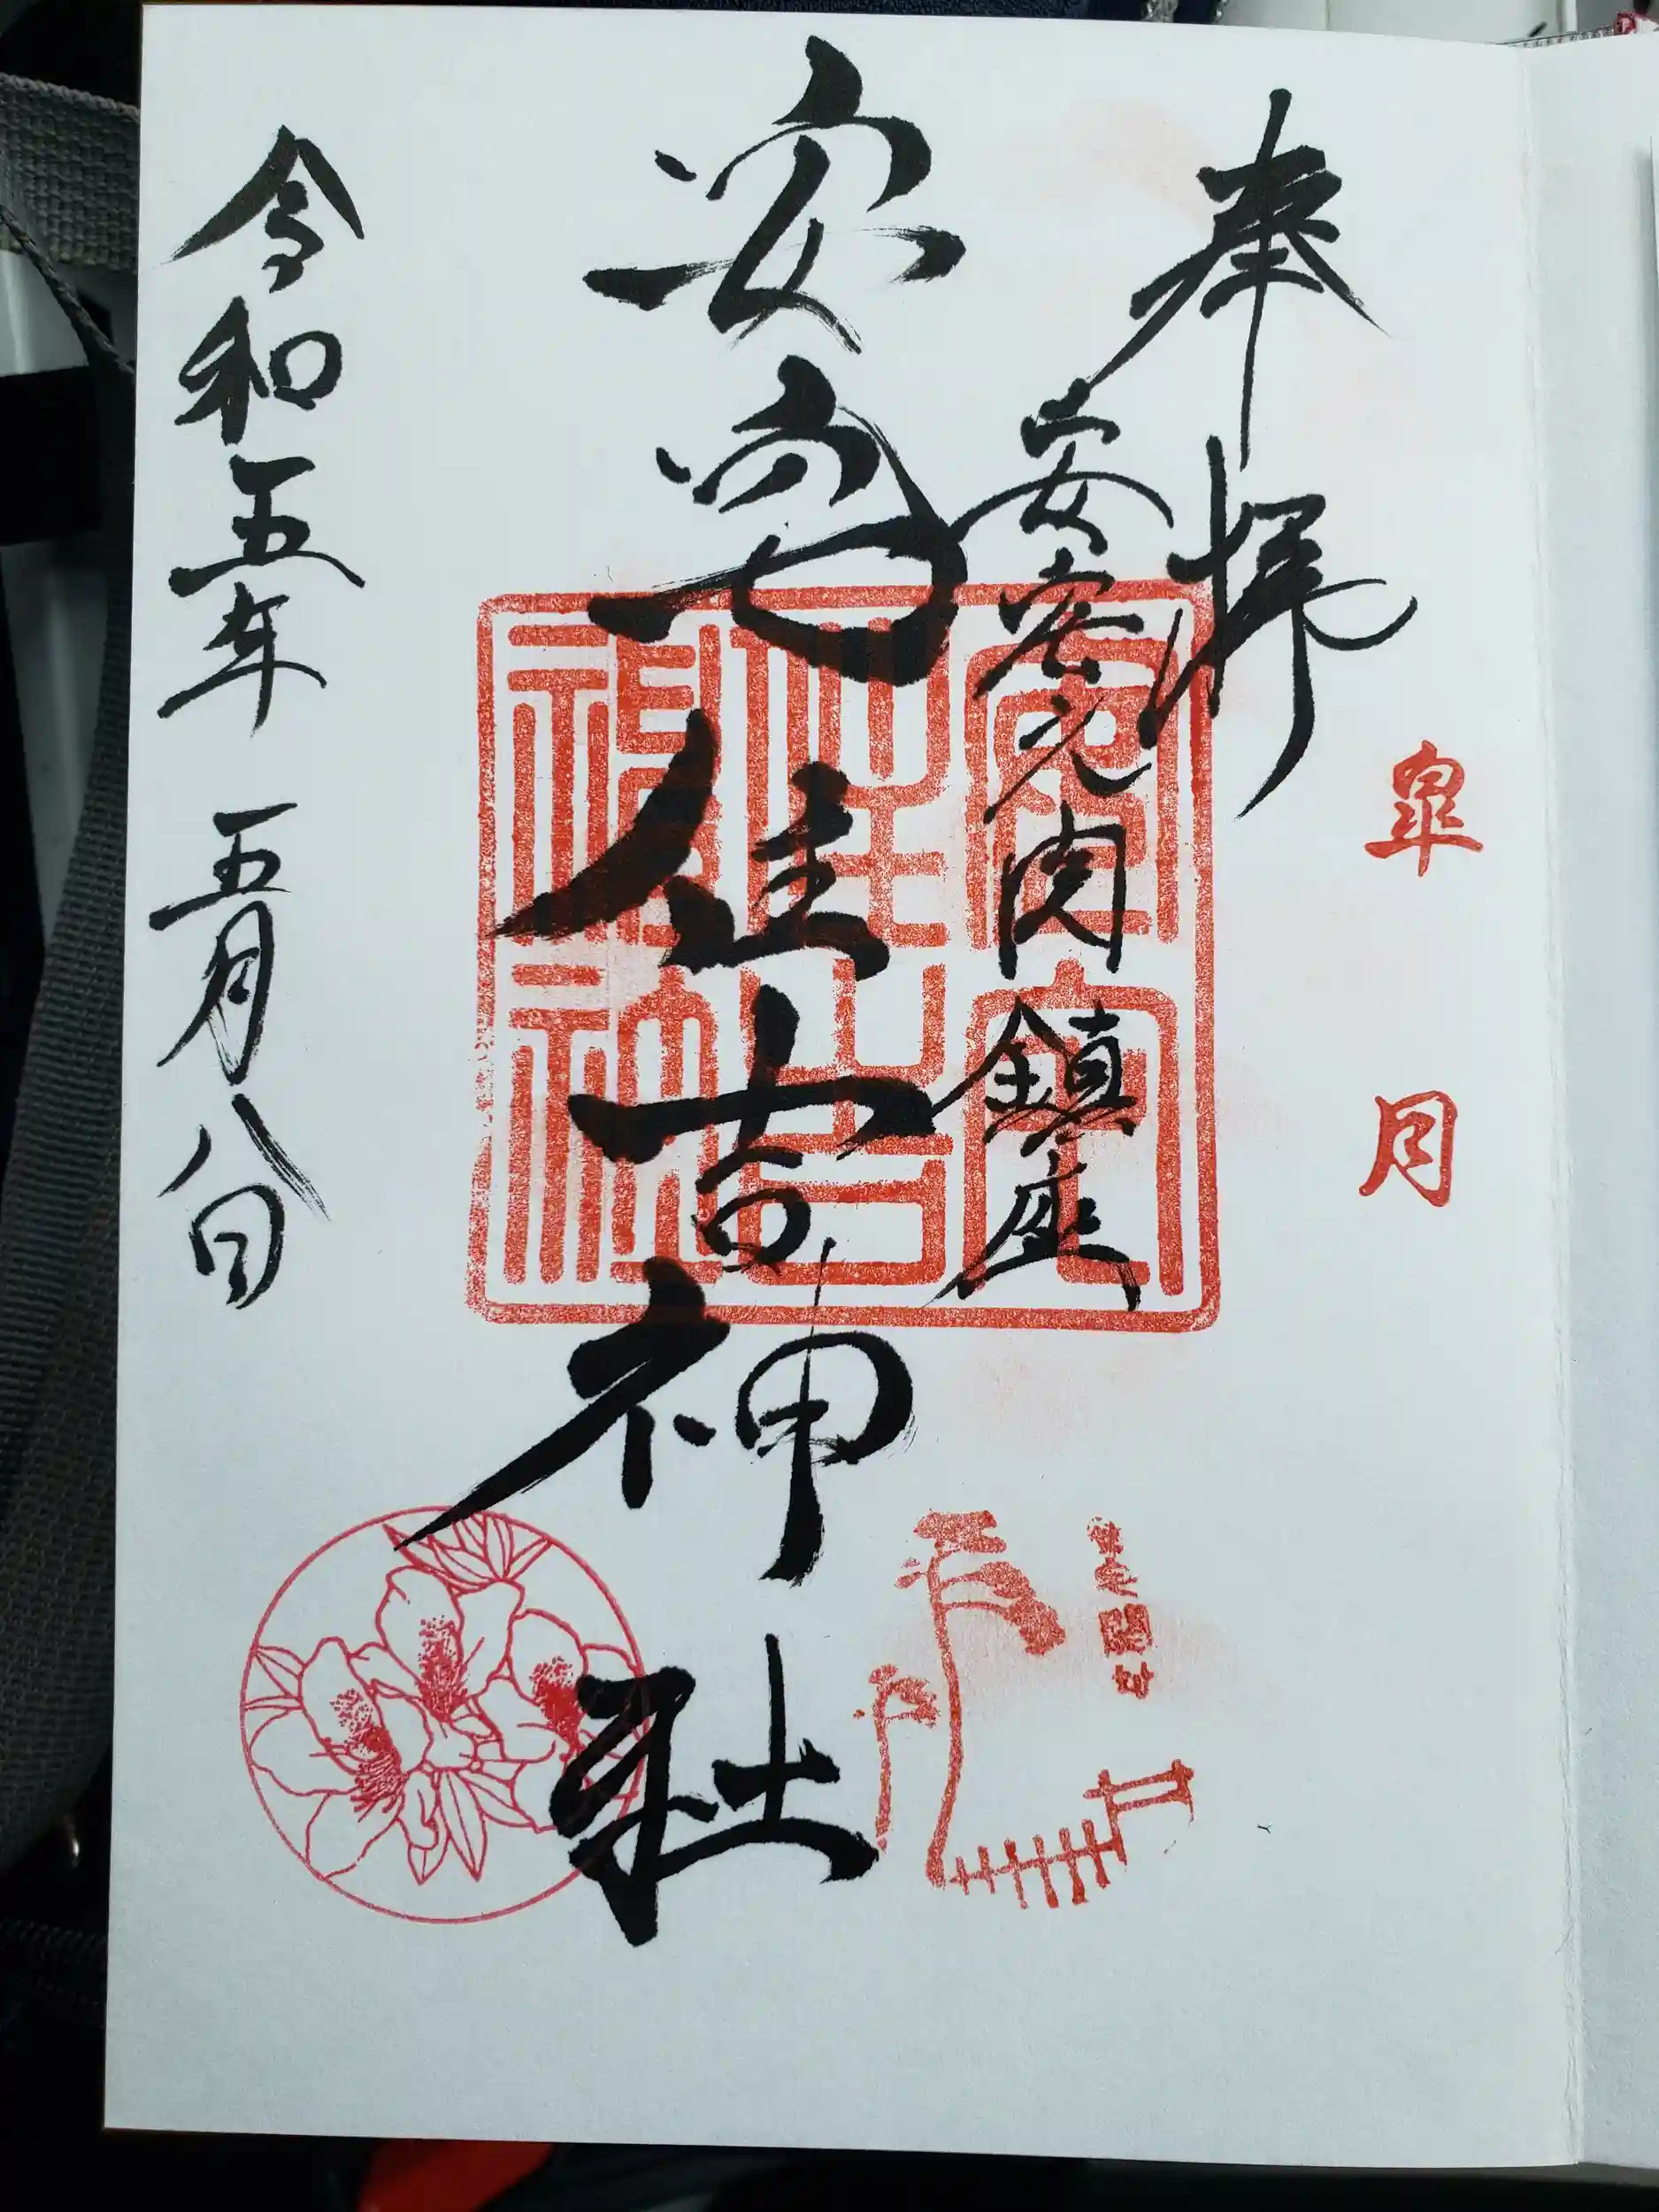 皐月
奉拝
安宅之関鎮座
安宅住吉神社
安宅
住吉
神社
令和五年五月八日